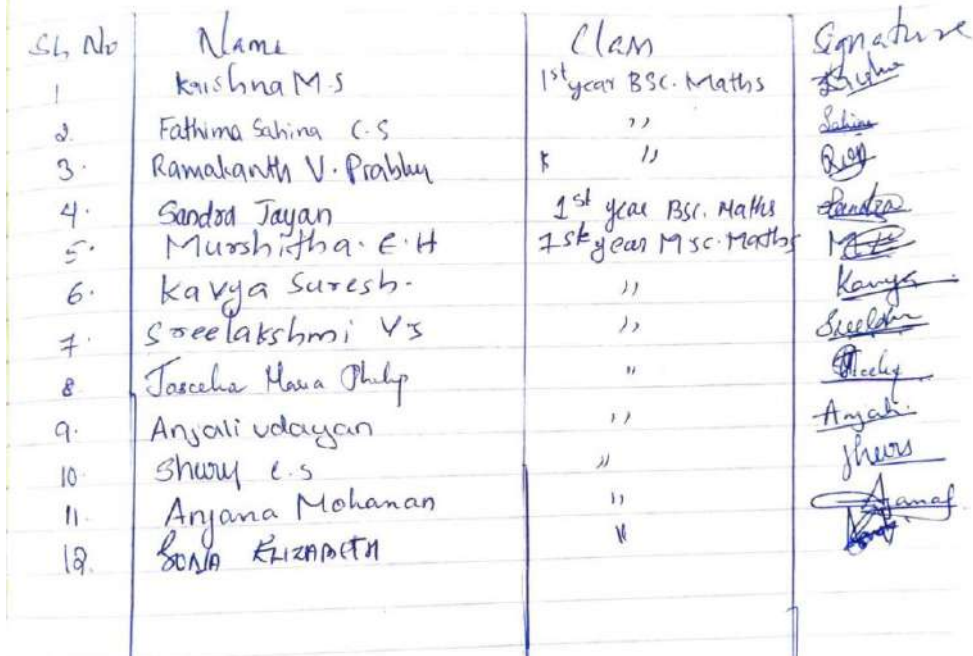 Sl, No Name Class Signature
1 Krishna M.S 1st year BSc. Maths
2. Fathima Sahina C.S ,, Sahina
3. Ramakanth V. Prabhu ,,
4. Sandra Jayan 1st year BSc. Maths Sandra
5. Murshitha. E.H 1st year Msc. Maths
6. Kavya Suresh. ,, Kavya
7. Sreelakshmi V S ,,
8 Maria Philip ,,
9. Anjali udayan ,, Anjali.
10. C.S ,,
11. Anjana Mohanan ,,
12. SONIA ELIZABETH ,,